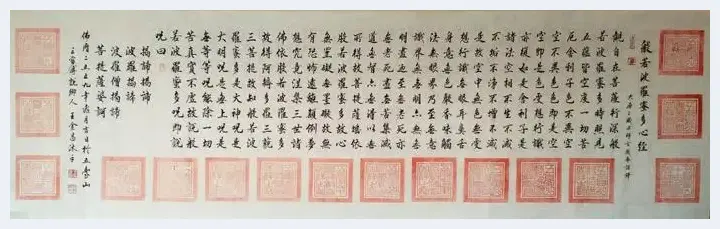 般若波羅蜜多心經
大唐三藏法師玄奘奉詔譯
觀自在菩薩行深般
若波羅蜜多時照見
五蘊皆空度一切苦
厄舍利子色不異空
空不異色色即是空
空即是色受想行識
亦復如是舍利子是
諸法空相不生不滅
不垢不淨不增不減
是故空中無色無受
想行識無眼耳鼻舌
身意無色聲香味觸
法無眼界乃至無意
識界無無明亦無無
明盡乃至無老死亦
無老死盡無苦集滅
道無智亦無得以無
所得故菩提薩埵依
般若波羅蜜多故心
無罣礙無罣礙故無
有恐怖遠離顛倒夢
想究竟涅槃三世諸
佛依般若波羅蜜多
故得阿耨多羅三藐
三菩提故知般若波
羅蜜多是大神咒是
大明咒是無上咒是
無等等咒能除一切
苦真實不虛故說般
若波羅蜜多咒即說
咒曰
揭諦揭諦
波羅揭諦
波羅僧揭諦
菩提薩婆訶
佛曆二五五九年月吉日於五臺山